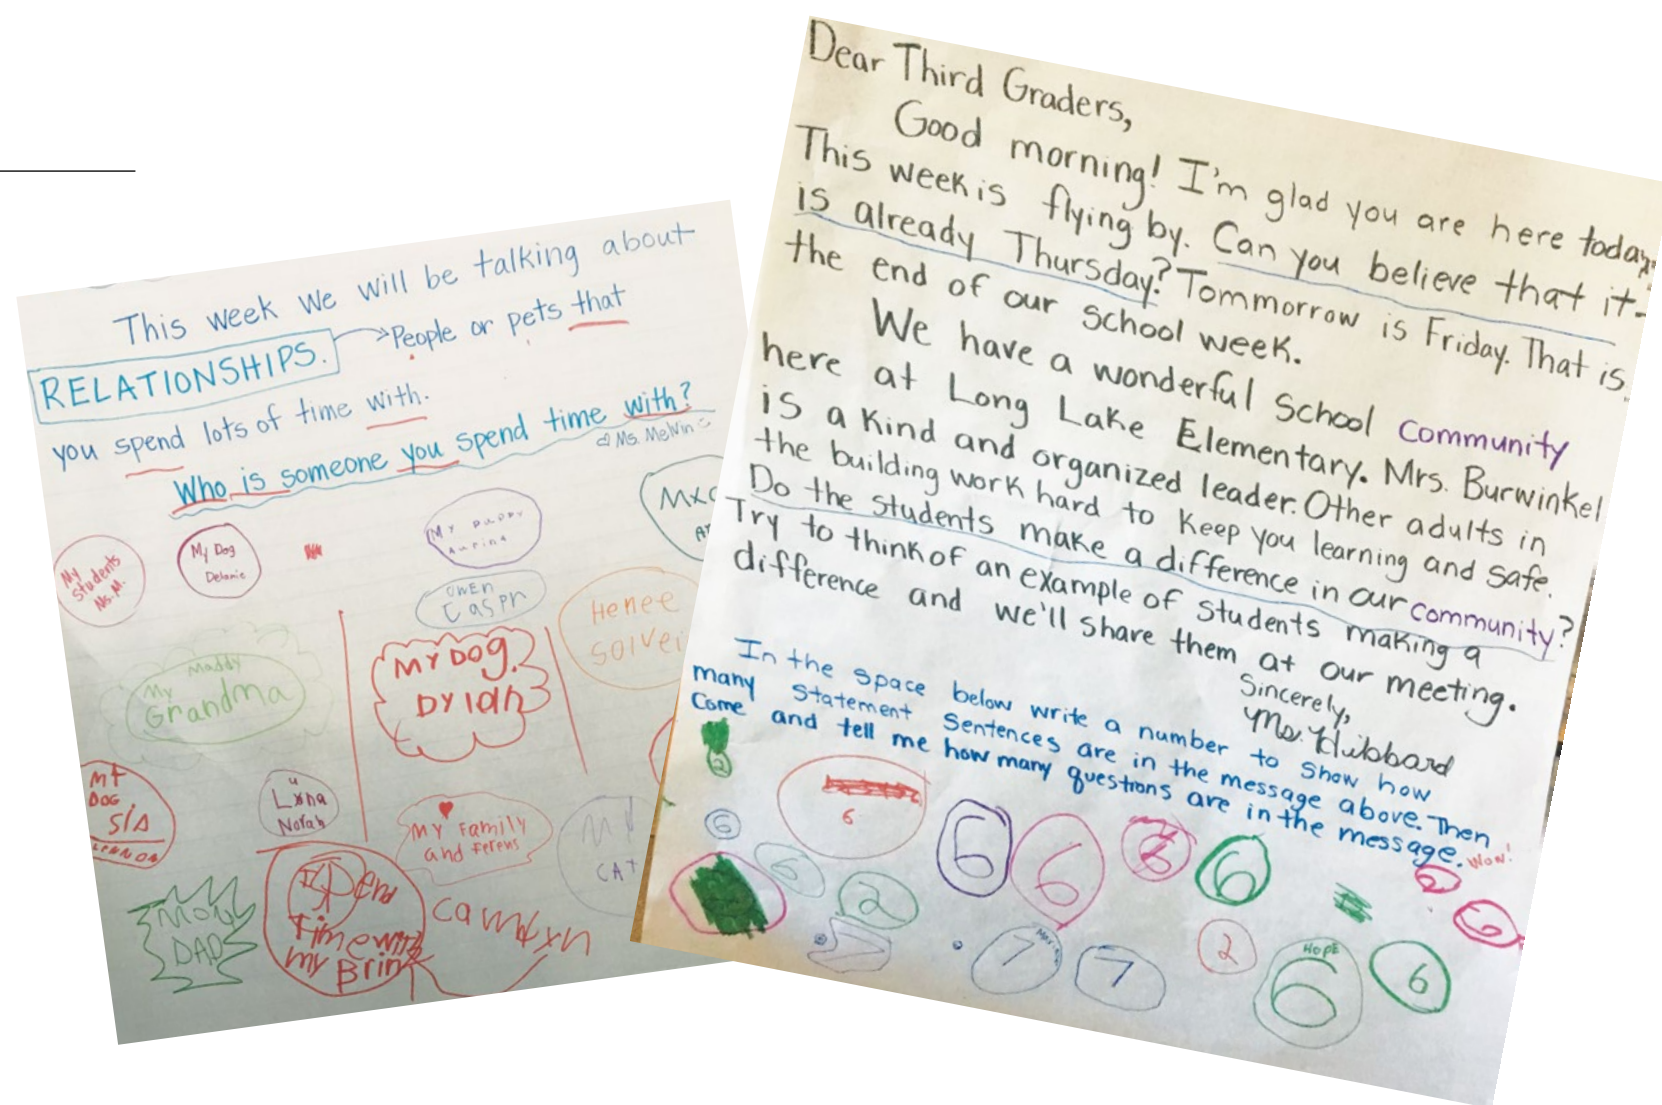 This week we will be talking about
RELATIONSHIPS. → People or pets that
you spend lots of time with.
Who is someone you spend time with?
♡ Ms. Melvin ☺
My
students
Ms. M.
My Dog
Delanie
My puppy
OWEN
Maddy
My
Grandma
MY DOG.
DYlAn
Henee
Solvei
MY
DOG
LENNON
Norah
♥
MY Family
and
MY
CAT
MOM
DAD
I SPend
Time with
my
camryn
Dear Third Graders,
Good morning! I'm glad you are here today.
This week is flying by. Can you believe that it
is already Thursday? Tommorrow is Friday. That is
the end of our school week.
We have a wonderful School community
here at Long Lake Elementary. Mrs. Burwinkel
is a kind and organized leader. Other adults in
the building work hard to keep you learning and safe.
Do the students make a difference in our community?
Try to think of an example of students making a
difference and we'll share them at our meeting.
Sincerely,
Ms. Hubbard
In the space below write a number to show how
many statement sentences are in the message above. Then
Come and tell me how many questions are in the message. Wow!
2
6
6
6
2
6
6
6
6
6
7
7
7
2
HOPE
6
6